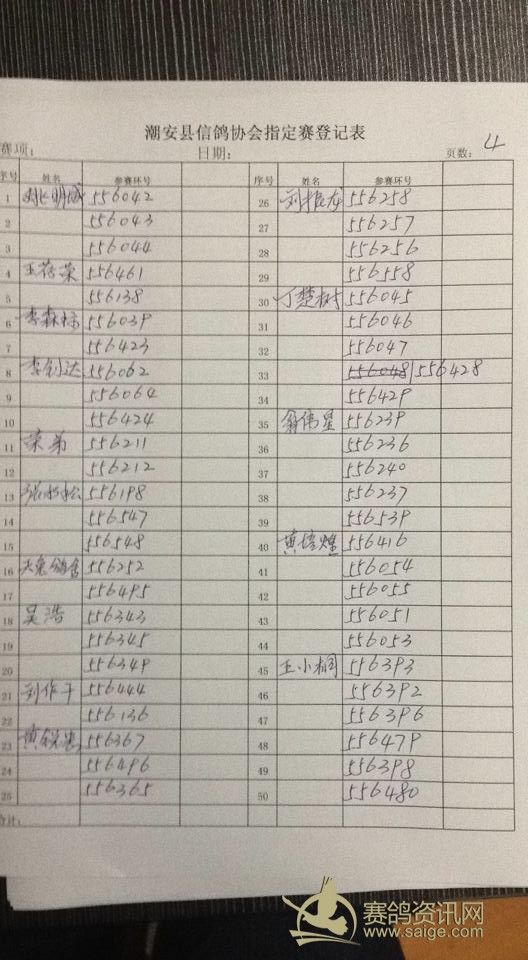 潮安县信鸽协会指定赛登记表
赛项： 日期： 页数： 4
序号 姓名 参赛环号 序号 姓名 参赛环号
1 姚明成 556042 26 刘振龙 556258
2 556043 27 556257
3 556044 28 556256
4 王荣 556461 29 556558
5 556138 30 丁楚树 556045
6 李森标 556039 31 556046
7 556423 32 556047
8 李创达 556062 33 556048 556428
9 556064 34 556429
10 556424 35 翁伟星 556239
11 荣弟 556211 36 556236
12 556212 37 556240
13 张松 556198 38 556237
14 556547 39 556539
15 556548 40 黄培煌 556416
16 天 鸽舍 556252 41 556054
17 556495 42 556055
18 吴浩 556343 43 556051
19 556345 44 556053
20 556349 45 王小桐 556393
21 刘作干 556444 46 556392
22 556136 47 556396
23 黄锐 556367 48 556479
24 556496 49 556398
25 556365 50 556480
合计：
赛鸽资讯网
www.saige.com